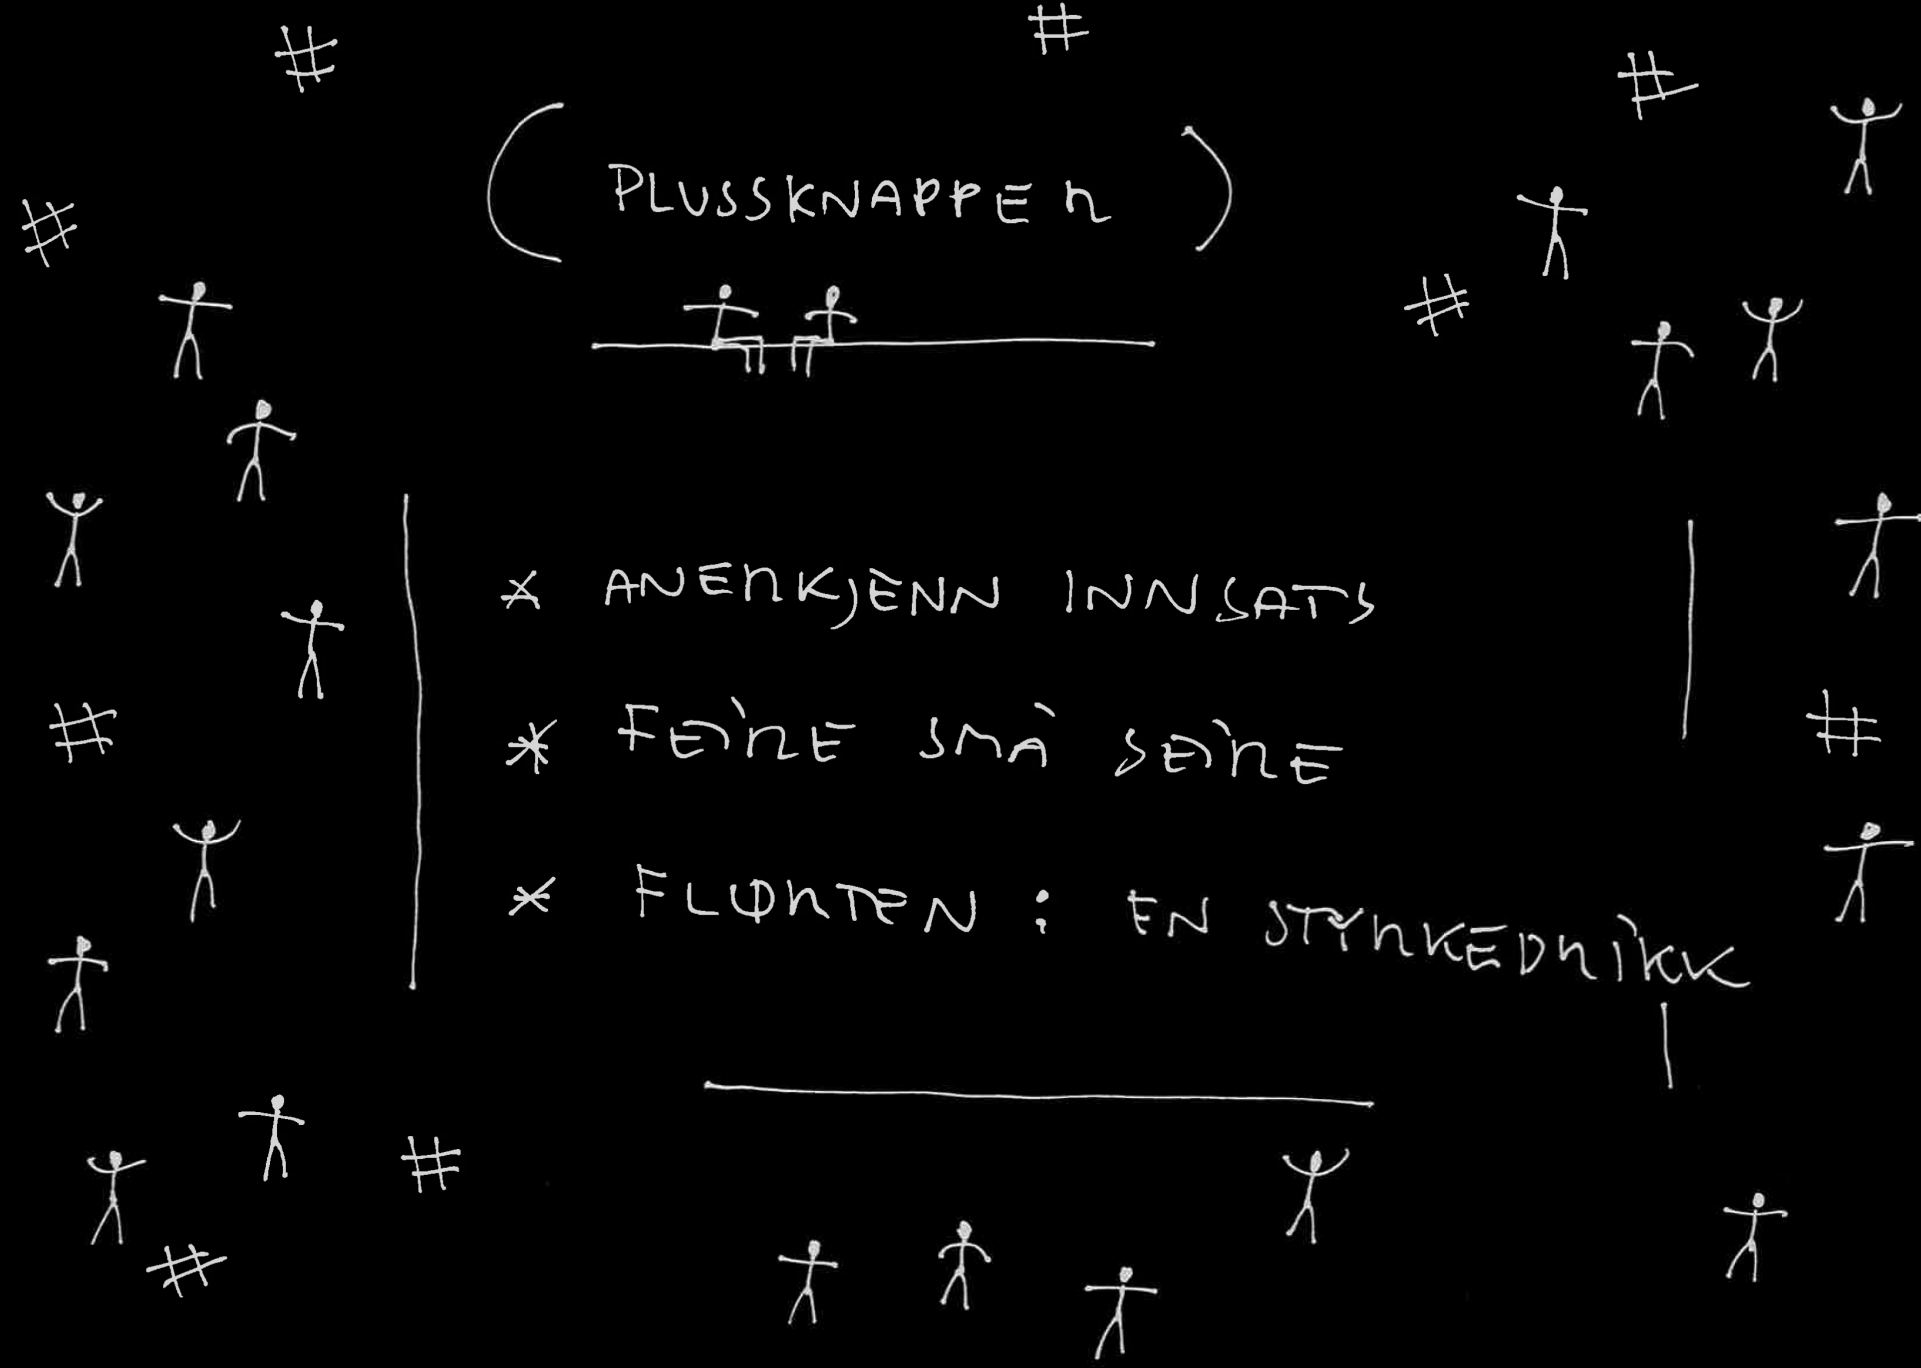 (PLUSSKNAPPEN)
* ANERKJENN INNSATS
* FEIRE SMÅ SEIRE
* FLØRTEN : EN STYRKEDRIKK